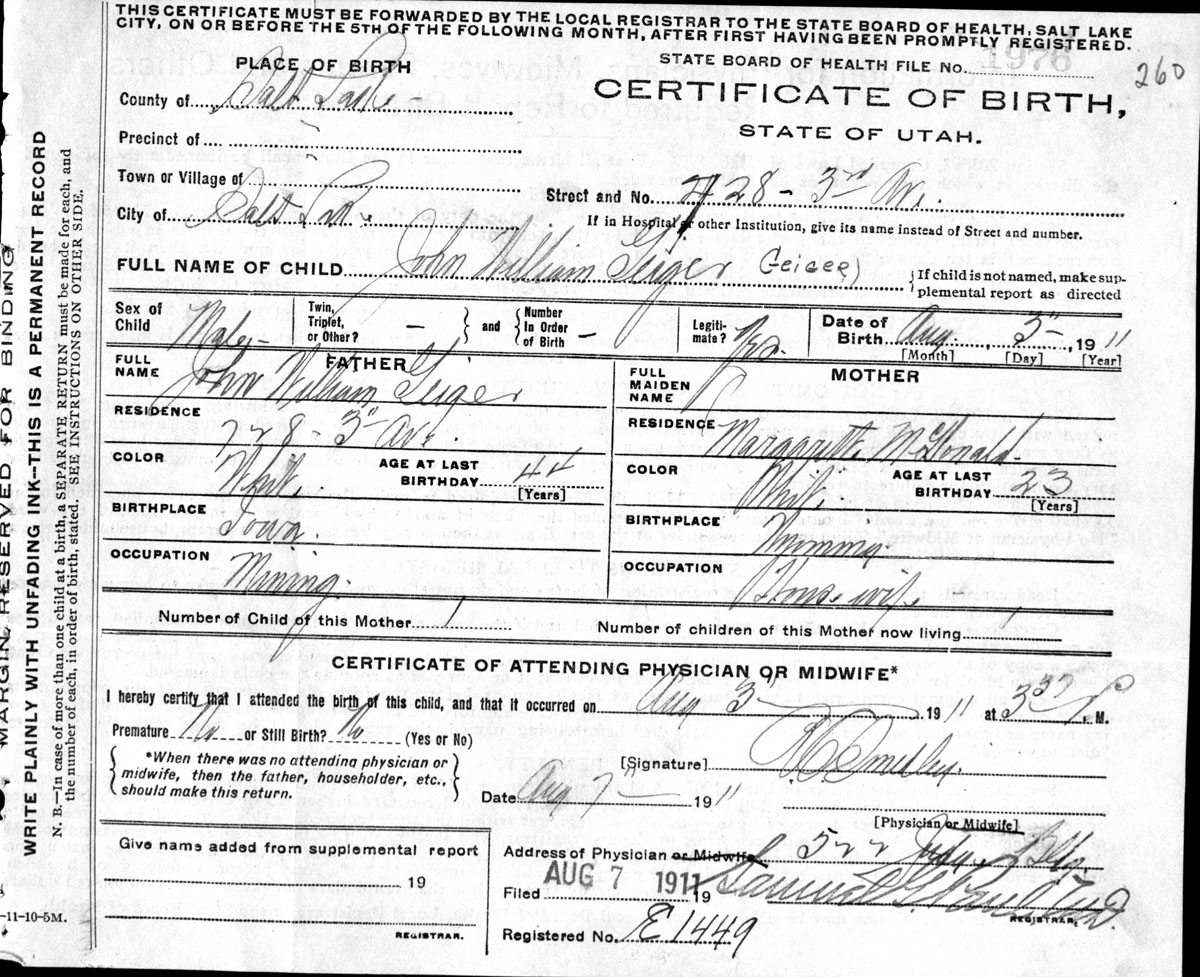 THIS CERTIFICATE MUST BE FORWARDED BY THE LOCAL REGISTRAR TO THE STATE BOARD OF HEALTH, SALT LAKE
CITY, ON OR BEFORE THE 5TH OF THE FOLLOWING MONTH, AFTER FIRST HAVING BEEN PROMPTLY REGISTERED.
STATE BOARD OF HEALTH FILE No. 1976
260
PLACE OF BIRTH
CERTIFICATE OF BIRTH,
STATE OF UTAH.
County of Salt Lake
Precinct of
Town or Village of
City of Salt Lake
Street and No. 728 - 3rd Av.
If in Hospital or other Institution, give its name instead of Street and number.
FULL NAME OF CHILD John William Geiger (Geiger)
{If child is not named, make sup-
plemental report as directed
Sex of Child Male
Twin, Triplet, or Other? —
and
Number In Order of Birth —
Legiti-mate? Yes.
Date of Birth Aug. 3-, 1911
[Month] [Day] [Year]
FATHER
FULL NAME John William Geiger
RESIDENCE 728 - 3" Ave.
COLOR White
AGE AT LAST BIRTHDAY 44
[Years]
BIRTHPLACE Iowa.
OCCUPATION Mining.
MOTHER
FULL MAIDEN NAME
RESIDENCE Margarette McDonald
COLOR White
AGE AT LAST BIRTHDAY 23
[Years]
BIRTHPLACE Wyoming.
OCCUPATION Housewife
Number of Child of this Mother 1
Number of children of this Mother now living 1
CERTIFICATE OF ATTENDING PHYSICIAN OR MIDWIFE*
I hereby certify that I attended the birth of this child, and that it occurred on Aug 3 1911 at P M.
Premature No or Still Birth? No (Yes or No)
*When there was no attending physician or
midwife, then the father, householder, etc.,
should make this return.
[Signature] Smedley.
Date Aug 7 1911
[Physician or Midwife]
Give name added from supplemental report
19
REGISTRAR.
Address of Physician or Midwife 522 Judge Bldg
Filed AUG 7 1911 19 Samuel G. Paul M.D.
REGISTRAR.
Registered No. E1449
-11-10-5M.
MARGIN RESERVED FOR BINDING
WRITE PLAINLY WITH UNFADING INK—THIS IS A PERMANENT RECORD
N. B.—In case of more than one child at a birth, a SEPARATE RETURN must be made for each, and
the number of each, in order of birth, stated. SEE INSTRUCTIONS ON OTHER SIDE.